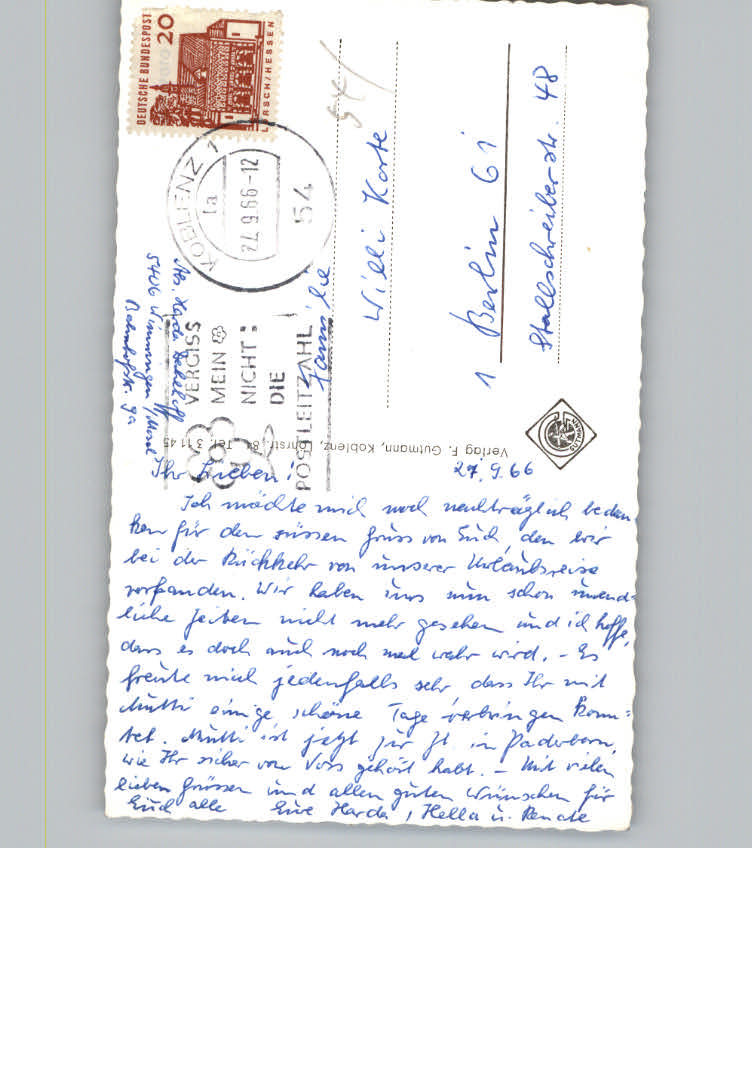 DEUTSCHE BUNDESPOST
20
LORSCH/HESSEN
KOBLENZ 1
1a
27.9.66-12
54
VERGISS
MEIN
NICHT:
DIE
POSTLEITZAHL!
Abs. Harda
5406 Winningen/Mosel
Bahnhofstr. 9a
54/
Familie
Willi Korte
1 Berlin 61
Stallschreiberstr. 48
Verlag F. Gutmann, Koblenz, Löhrstr. Tel. 31145
27.9.66
Ihr Lieben!
Ich möchte mich noch nachträglich bedan-
ken für den süssen Gruss von Euch, den wir
bei der Rückkehr von unserer Urlaubsreise
vorfanden. Wir haben uns nun schon unend-
liche Zeiten nicht mehr gesehen und ich hoffe,
dass es doch auch noch mal wahr wird. - Es
freute mich jedenfalls sehr, dass Ihr mit
Mutti einige schöne Tage verbringen konn-
tet. Mutti ist jetzt zur Zt. in Paderborn,
wie Ihr sicher von Voss gehört habt. - Mit vielen
lieben Grüssen und allen guten Wünschen für
Euch alle Eure Harda, Hella u. Renate